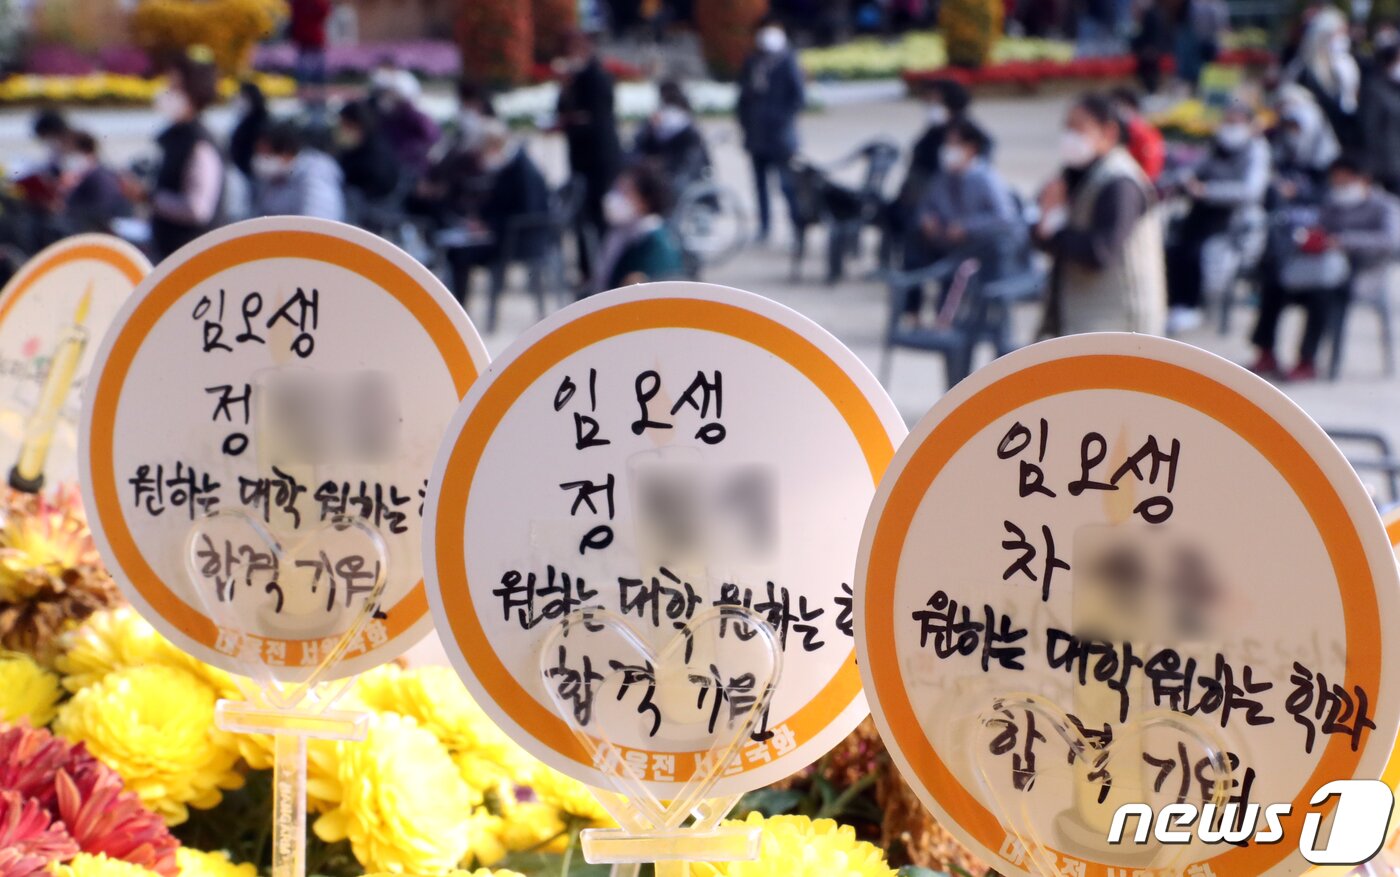 임오생
정
원하는 대학 원하는
합격 기원
대웅전 서원국화
임오생
정
원하는 대학 원하는 학
합격 기원
대웅전 서원국화
임오생
차
원하는 대학 원하는 학과
합격 기원
news1